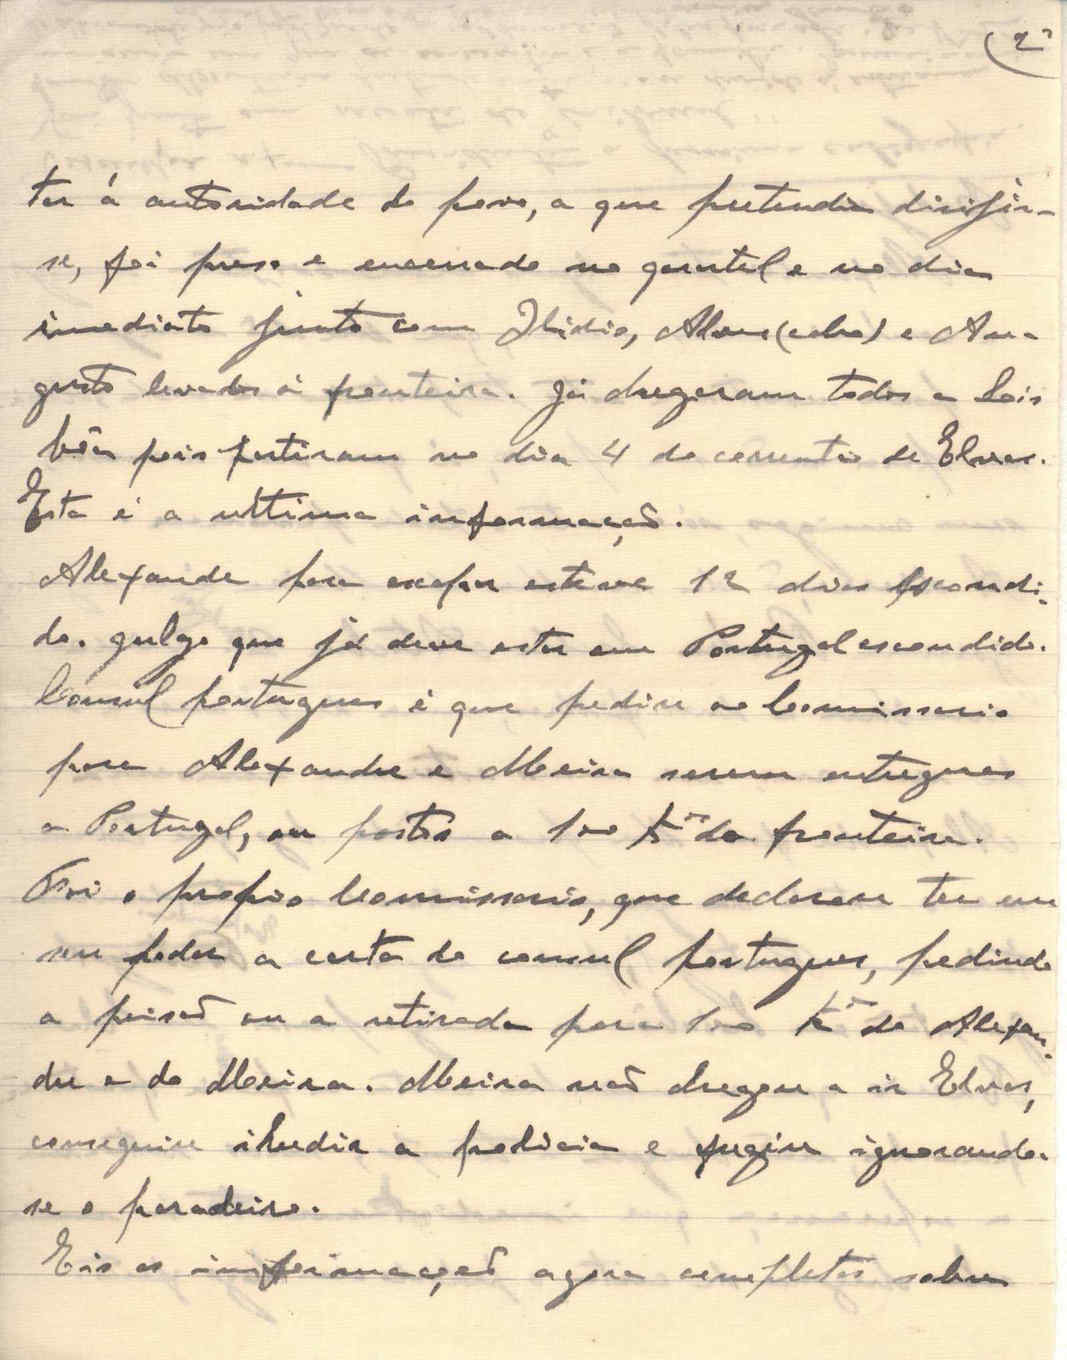 (2
ter á autoridade do povo, a que pretendia dirigir-
se, foi preso e encerrado no quartel e no dia
immediato junto com Ilidio, Alves (cabo) e Au-
gusto levados á fronteira. Já chegaram todos a Lis
bôa pois partiram no dia 4 do corrente de Elvas.
Esta é a ultima informação.
Alexandre para escapar esteve 12 dias escondi-
do. Julgo que já deve estar em Portugal escondido.
Consul portugues é que pediu ao Comissario
para Alexandre e Meira serem entregues
a Portugal, ou postos a 100 k^m da fronteira.
Foi o proprio Comissario, que declarou ter em
seu poder a carta do consul portugues, pedindo
a prisão ou a retirada para 100 k^m do Alexan-
dre e do Meira. Meira não chegou a ir Elvas,
conseguiu iludir a policia e fugiu ignorando-
se o paradeiro.
Eis as informação agora completas sobre